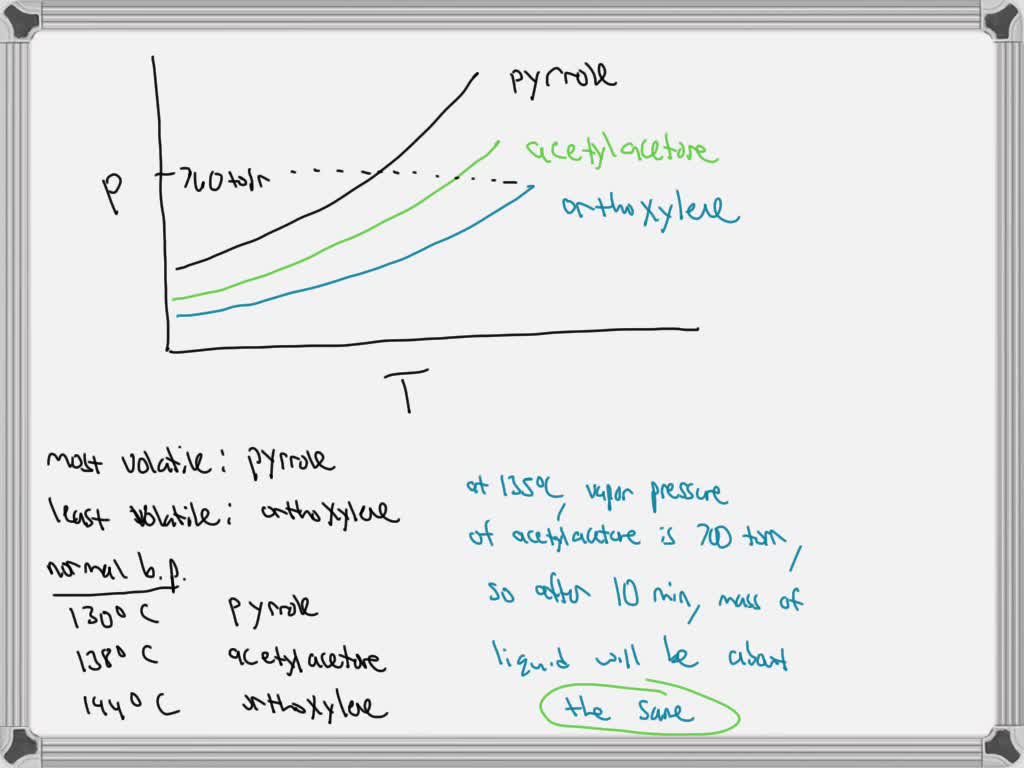 pyrrole
acetylacetone
P
760 torr
orthoxylene
T
most volatile: pyrrole
least volatile: orthoxylene
normal b.p.
130° C pyrrole
138° C acetylacetone
144° C orthoxylene
at 135°C, vapor pressure
of acetylacetone is 700 torr,
so after 10 min, mass of
liquid will be about
the same